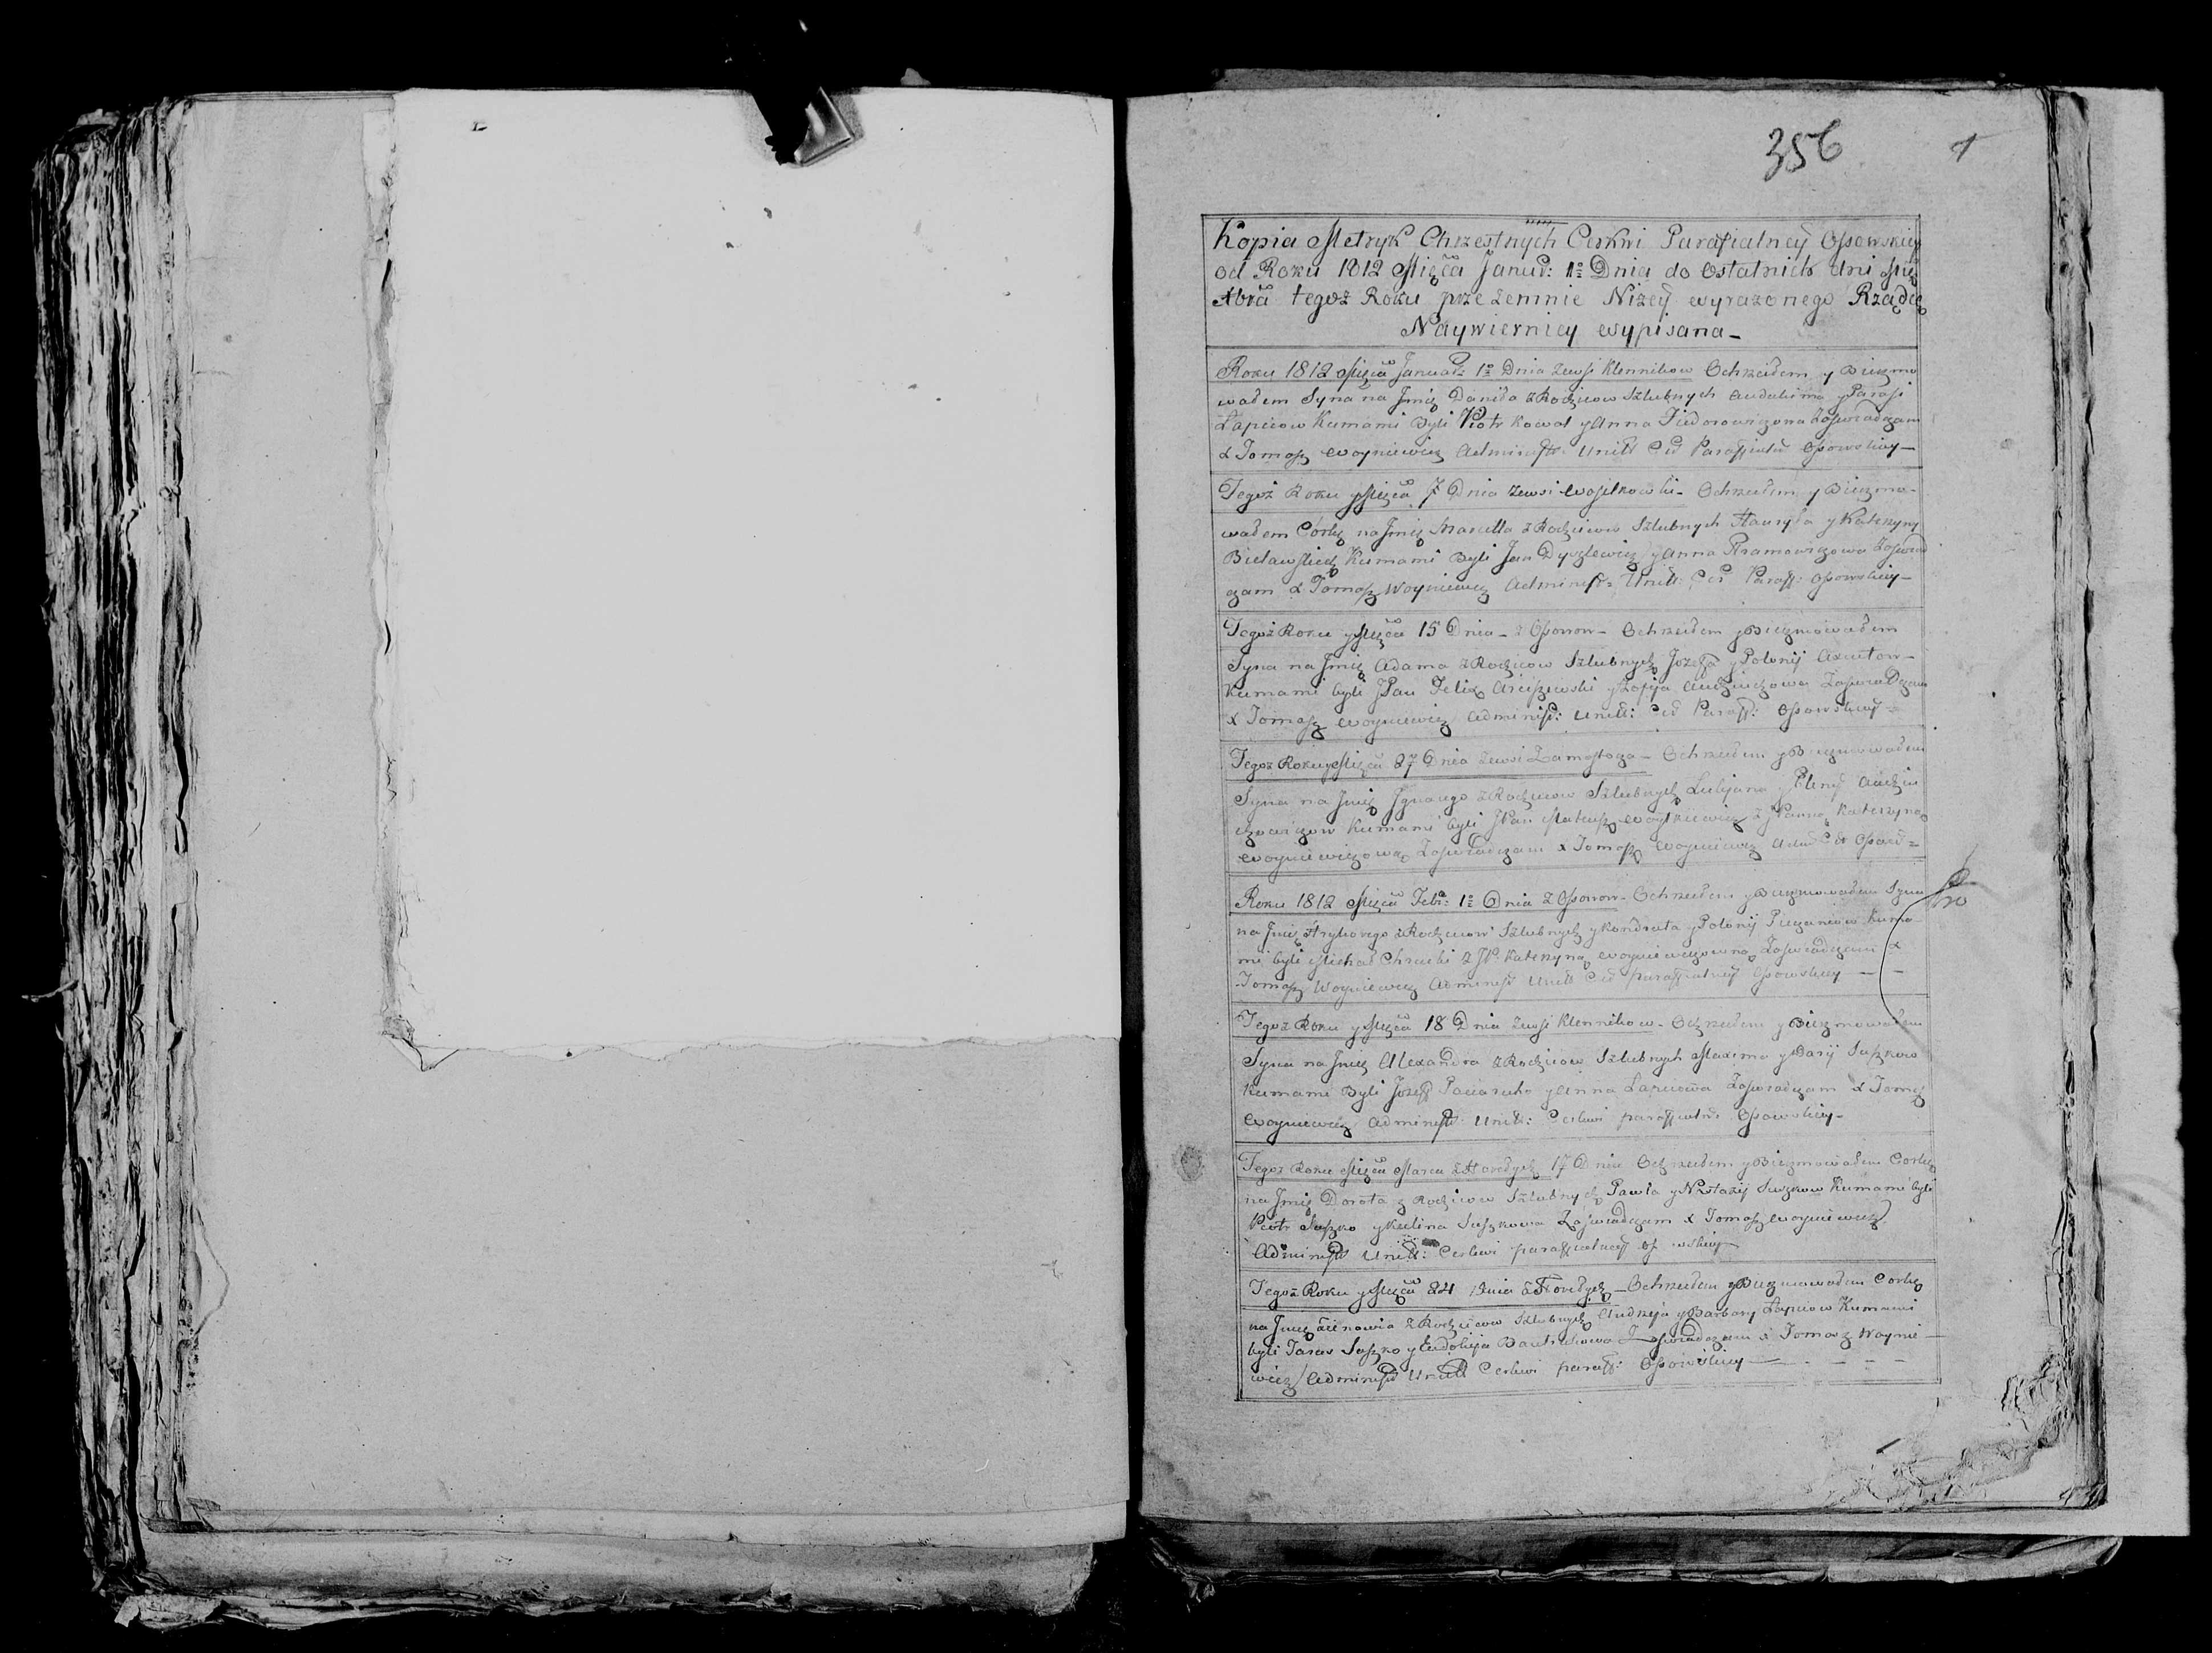 356 1
Kopia Metryk Chrzestnych Cerkwi Parafialney Ossowskiey
od Roku 1812 Mięca Januar: 1º Dnia do Ostatnich dni Mię
Xbra tegoż Roku prze zemnie Niżey wyrażonego Rządcę
Naywierniey wypisana
Roku 1812 Mięca Januar: 1º Dnia zewsi Klennikow Ochrzciłem y Bierzmo
wałem Syna na Jmię Daniła z Rodzicow Szlubnych y Parasi
Łapiciow Kumami Byli Piotr Kowal y Anna Fiedorowiczowa Zaświadczam
X Tomasz Woyniewicz Administr. Unitt Cer Paraffialn Ossowskiey
Tegoż Roku y Mięca 7 Dnia zewsi Wasilkowki Ochrzciłem y Bierzmo-
wałem Corkę na Jmię Marcella z Rodzicow Szlubnych Hauryła y Katerzyny
Bielawskich Kumami Byli Jan y Anna Zaświad
czam X Tomasz Woyniewicz Administ: Unitt: Cer Paraff: Ossowskiey
Tegoż Roku y Mięca 15 Dnia z Ossowow Ochrzciłem y Bierzmowałem
Syna na Jmię Adama z Rodzicow Szlubnych Jozefa y Polonij
Kumami byli JPan Felix Arciszewski y Zofija Zaświadczam
X Tomasz Woyniewicz Administ: Unitt: Cer Paraff: Ossowskiey
Tegoż Roku y Mięca 27 Dnia zewsi Zamostocza Ochrzciłem y Bierzmowałem
Syna na Jmię Jgnacego z Rodzicow Szlubnych Lulijana y Eleny
Kumami byli JPan Mateusz z JPanną Katerzyną
Woyniewiczowną Zaświadczam X Tomasz Woyniewicz Adm Cer Ossow
Roku 1812 Mięca Febr: 1º Dnia z Ossowow Ochrzciłem y Bierzmowałem Syna
na Jmię z Rodzicow Szlubnych y Kondrata y Polonij Kuma
mi byli Michał z JP. Katerzyną Woyniewiczowną Zaświadczam X
Tomasz Woyniewicz Administ Unitt Cer paraffialney Ossowskiey
Tegoż Roku y Mięca 18 Dnia zewsi Klennikow Ochrzciłem y Bierzmowałem
Syna na Jmię Alexandra z Rodzicow Szlubnych Maxima y Darij Suszkow
Kumami Byli Jozeff y Anna Zaświadczam X Tomasz
Woyniewicz Administ Unitt: Cerkwi paraffialn: Ossowskiey
Tegoż Roku Mięca Marca z Horodych 17 Dnia Ochrzciłem y Bierzmowałem Corkę
na Jmię Dorota z Rodzicow Szlubnych Pawła y Nastazij Suszkow Kumami byli
Piotr Suszko y Kulina Suszkowa Zaświadczam X Tomasz Woyniewicz
Administ Unitt: Cerkwi paraffialney Ossowskiey
Tegoż Roku y Mięca 24 Dnia z Horodych Ochrzciłem y Bierzmowałem Corkę
na Jmię Zienowia z Rodzicow Szlubnych Andreja y Barbary Łapiciow Kumami
byli Taras Suszko y Eudokija Zaświadczam X Tomasz Woynie
wicz Administ Unitt Cerkwi paraff: Ossowskiey